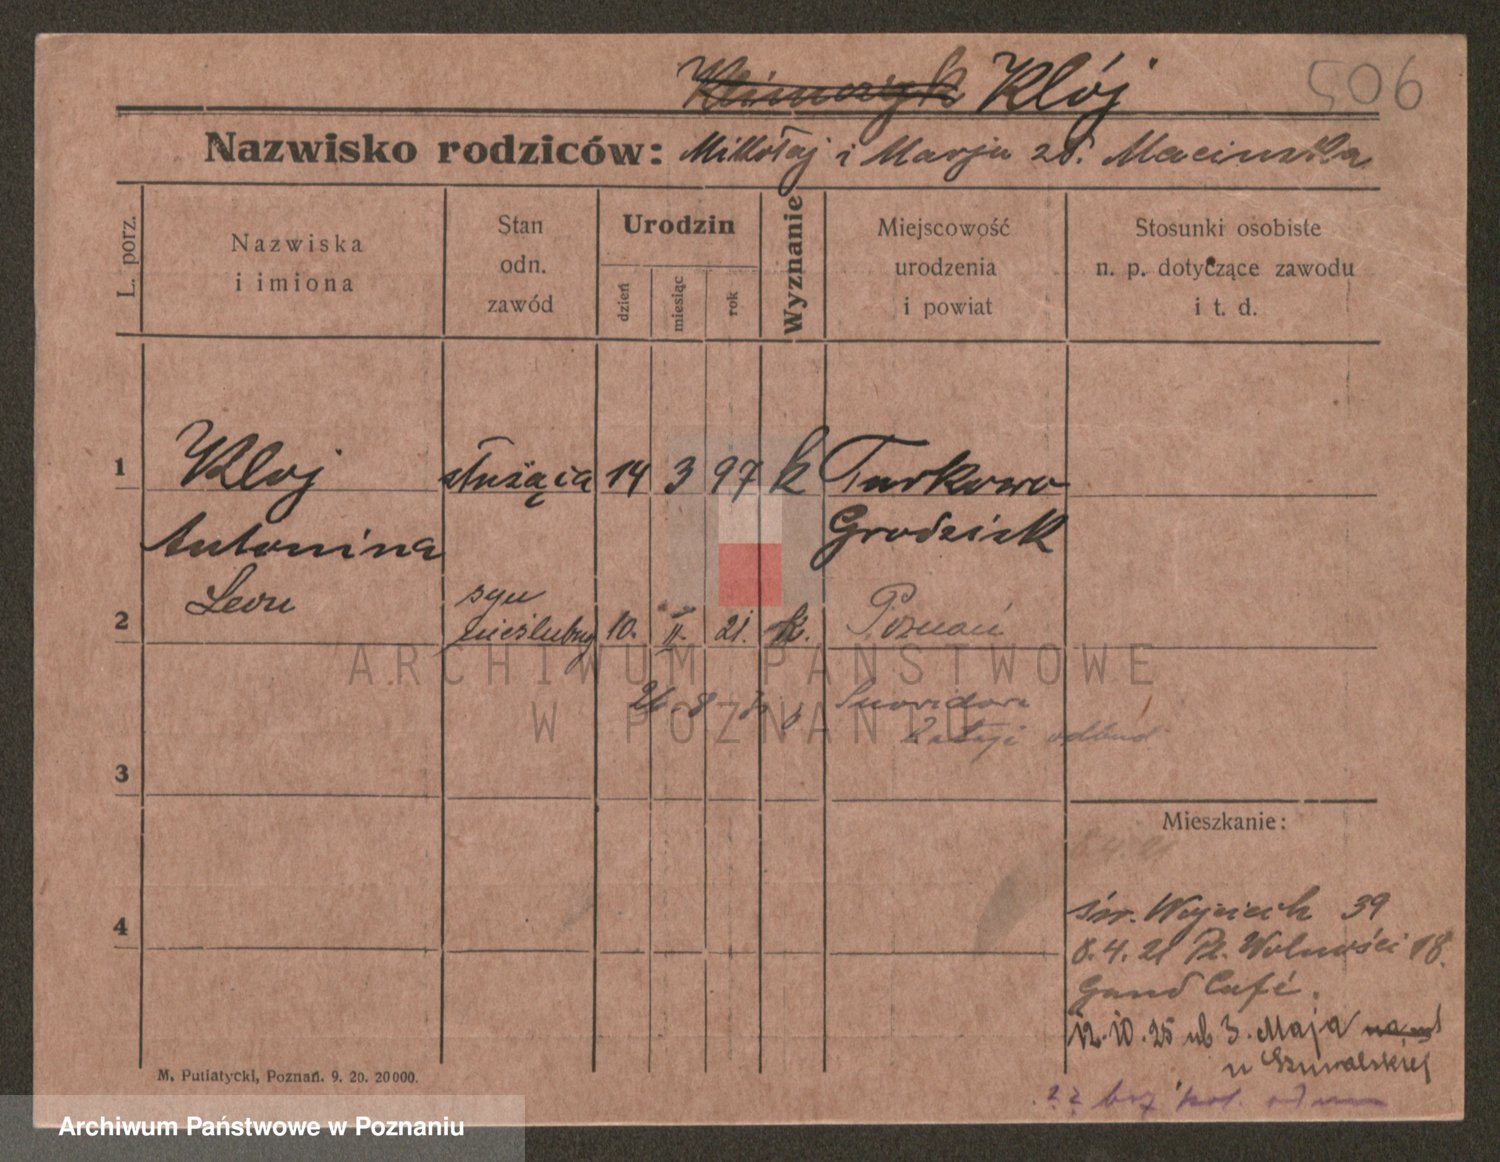 Klimczyk Klój 506
Nazwisko rodziców: Mikołaj i Marja zd.
L. porz.
Nazwiska i imiona
Stan odn. zawód
Urodzin
dzień
miesiąc
rok
Wyznanie
Miejscowość urodzenia i powiat
Stosunki osobiste n. p. dotyczące zawodu i t. d.
1 Kloj służąca 14 3 97 k Turkowo
Antonina Grodzisk
Leon syn
2 nieślubny 10. II. 21. k. Poznań
26 8
3
Mieszkanie:
4
św. Wojciech 39
8.4.21 Pl. Wolności 18.
Gand Café.
12.10.25 ul 3. Maja
u
bez
M. Putiatycki, Poznań. 9. 20. 20000.
ARCHIWUM PAŃSTWOWE
W POZNANIU
Archiwum Państwowe w Poznaniu